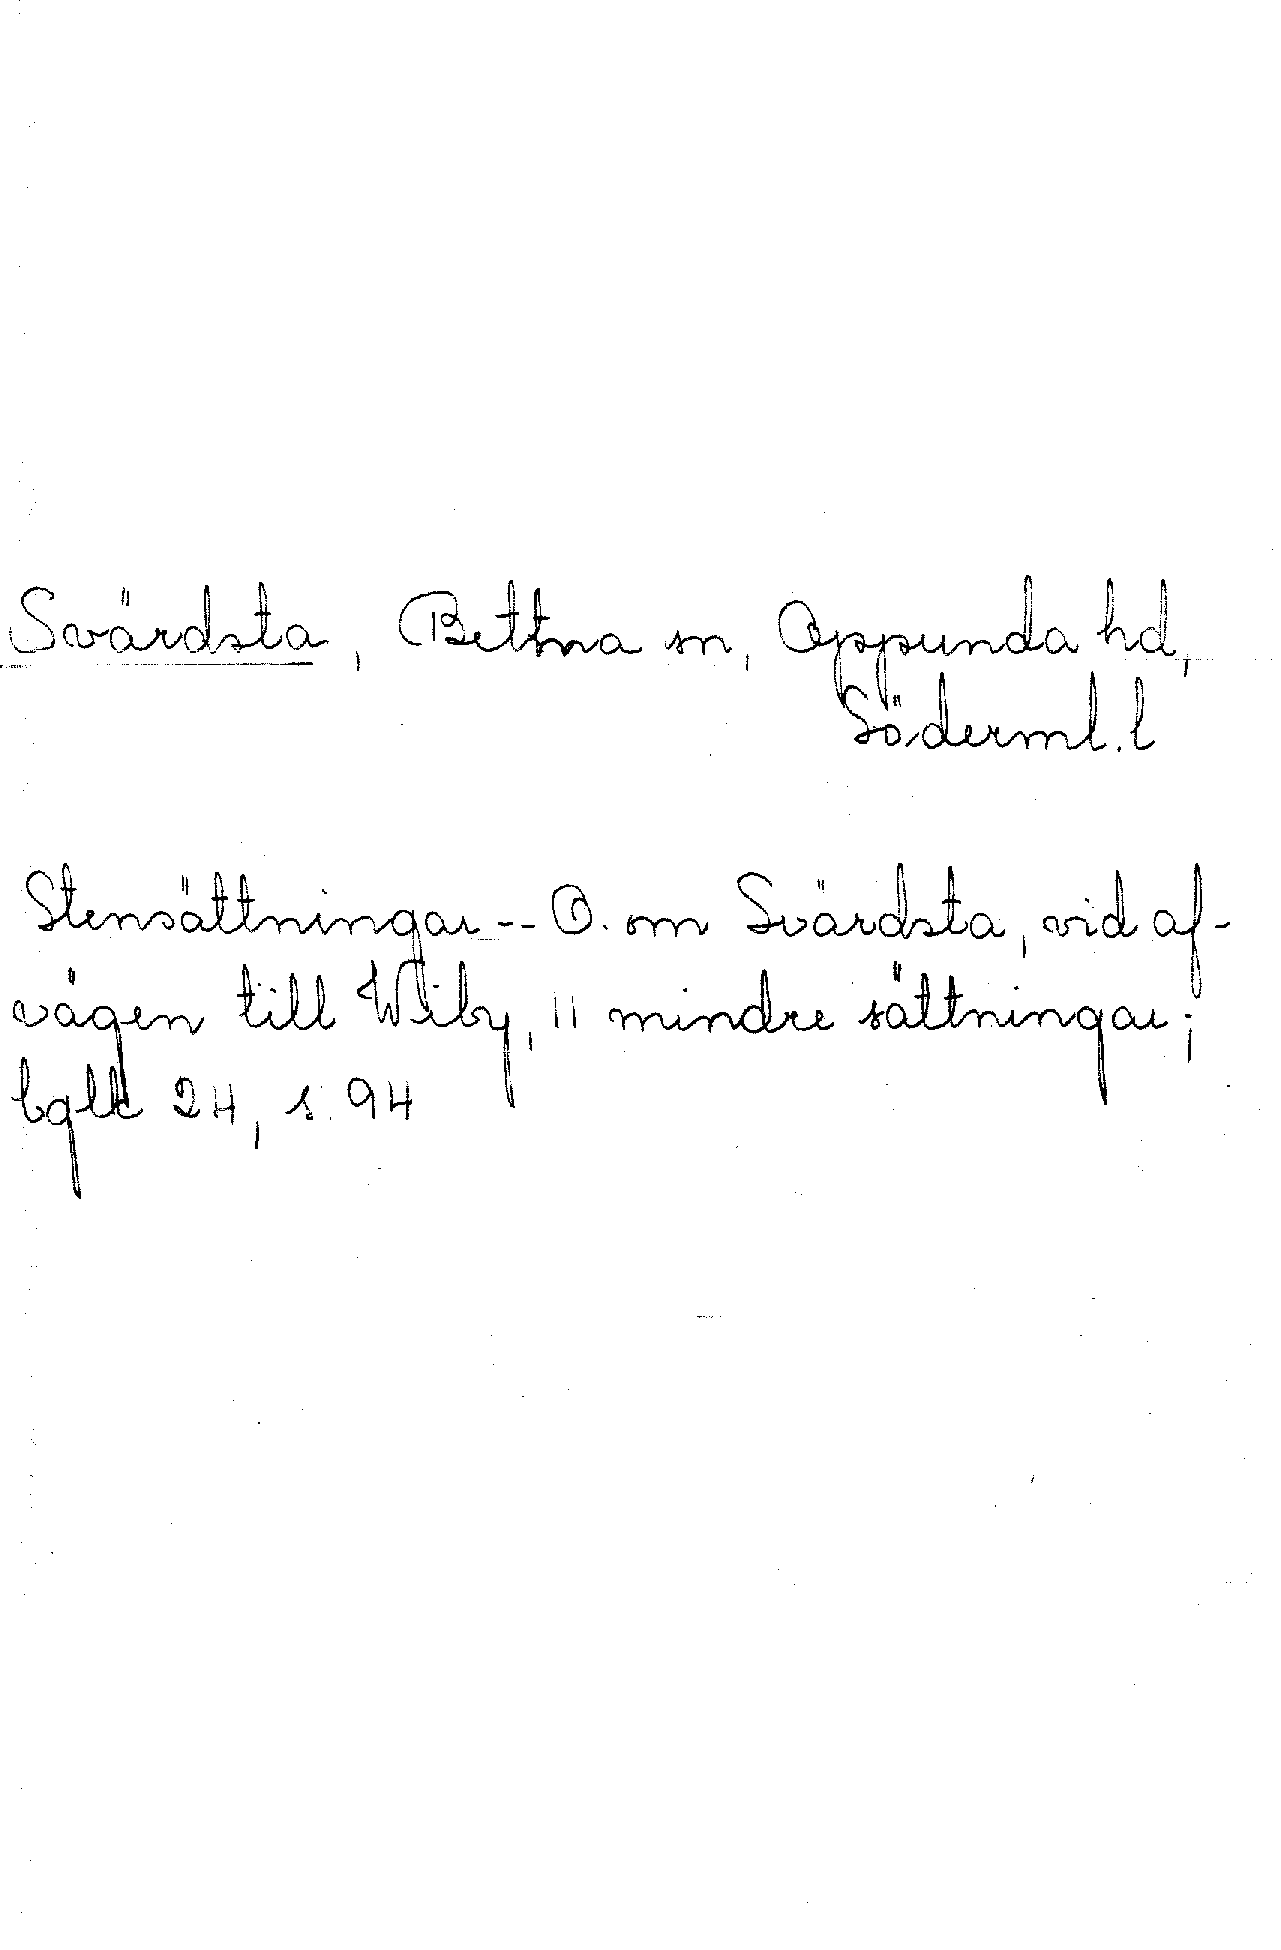 Svärdsta, Bettna sn, Oppunda hd,
Söderml. l
Stensättningar -- O. om Svärdsta, vid af-
vägen till Wiby, 11 mindre sättningar;
bglk 24, s. 94